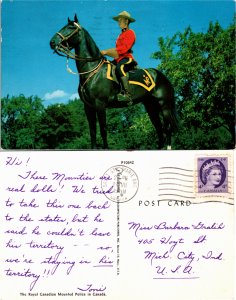 P10642
Hi!
These Mounties are
real dolls! We tried
to take this one back
to the states, but he
said he couldn't leave
his territory -- so,
we're staying in his
territory!!
Toni
The Royal Canadian Mounted Police in Canada.
POST CARD
Miss Barbara
405 Hoyt St
Mich. City, Ind.
U.S.A.